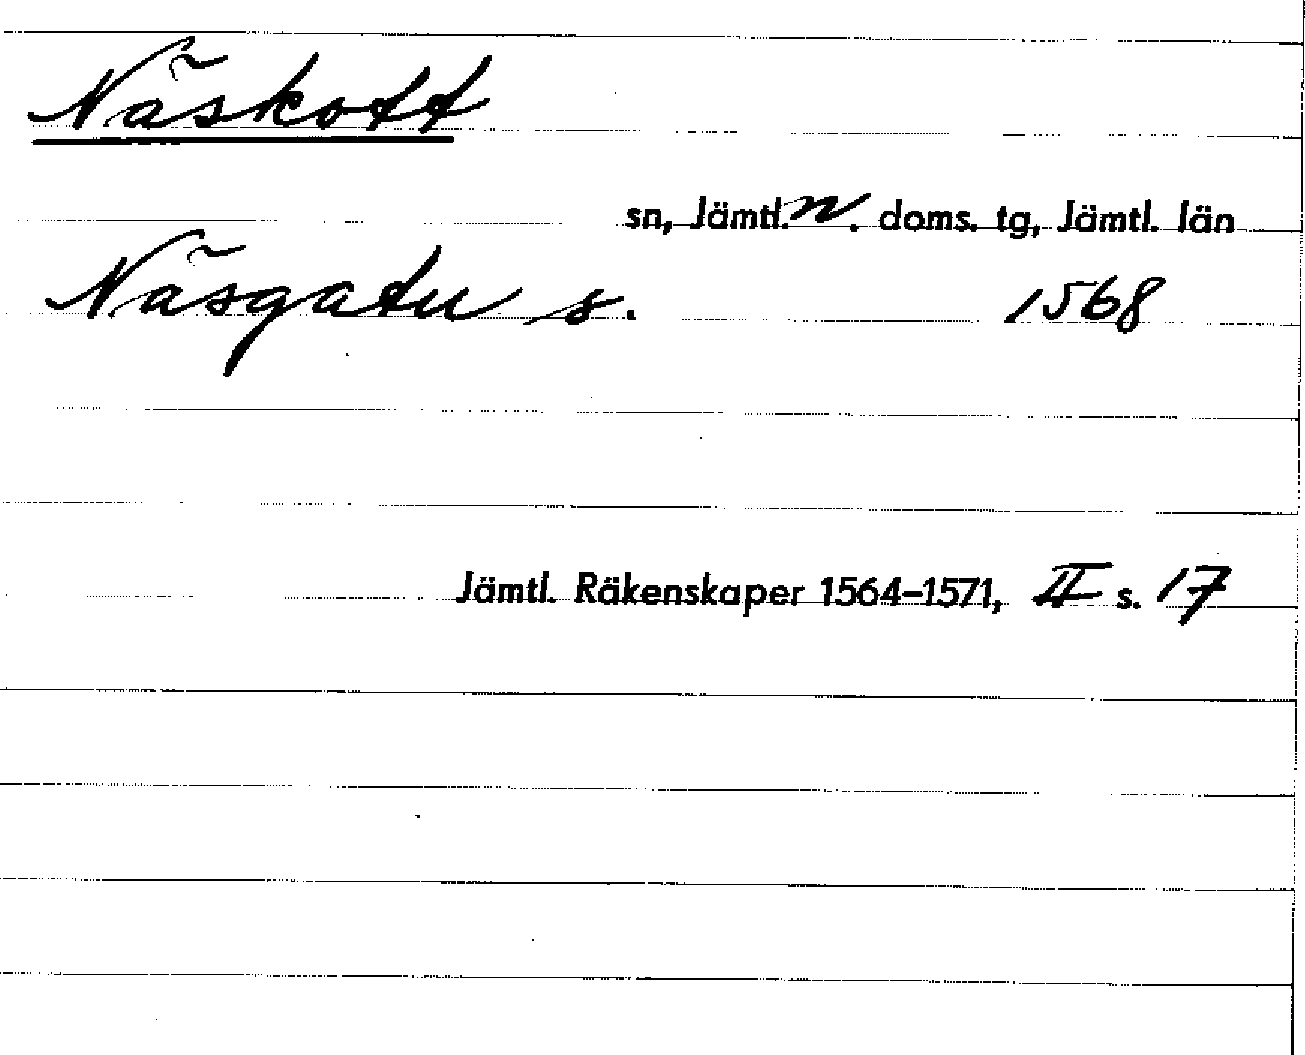 Näskott
sn, Jämtl. n. doms. tg, Jämtl. län
Näsgatu s. 1568
Jämtl. Räkenskaper 1564–1571, II s. 17